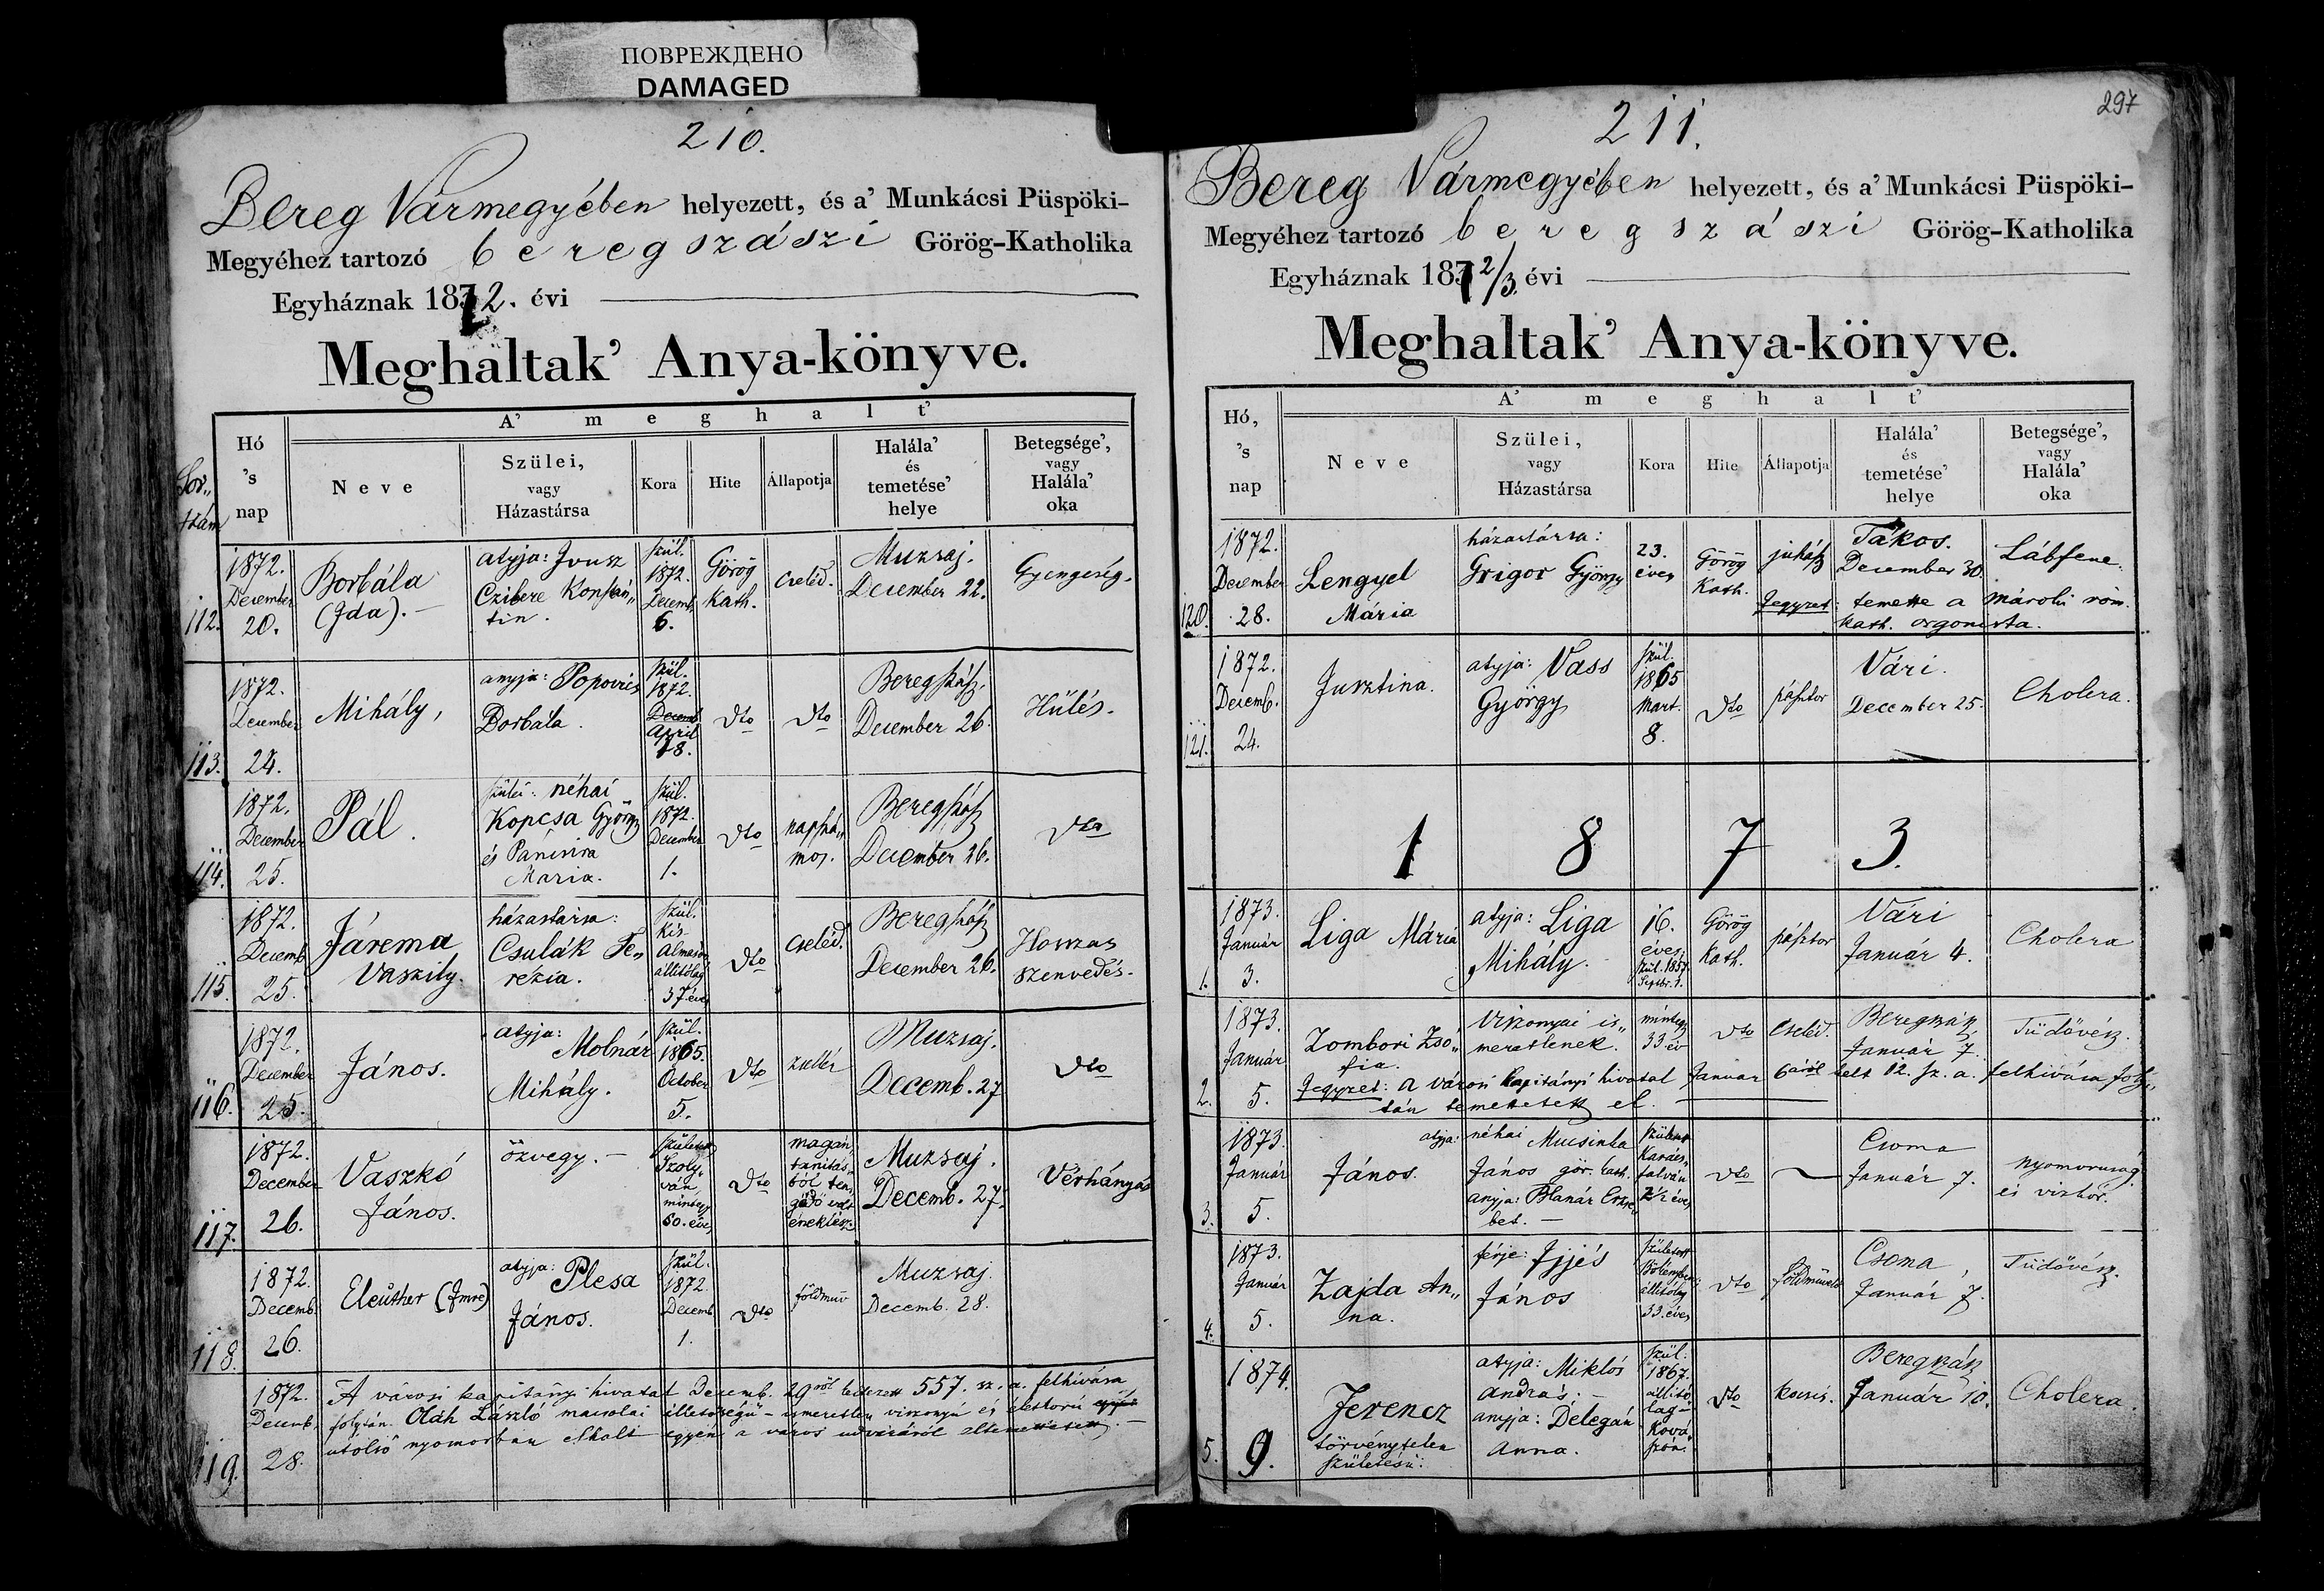 ПОВРЕЖДЕНО
DAMAGED
210.
Bereg Vármegyében helyezett, és a' Munkácsi Püspöki-
Megyéhez tartozó beregszászi Görög-Katholika
Egyháznak 1872. évi
Meghaltak' Anya-könyve.
Sor„
szám
Hó
's
nap
A' meghalt'
Neve
Szülei,
vagy
Házastársa
Kora
Hite
Állapotja
Halála'
és
temetése'
helye
Betegsége',
vagy
Halála'
oka
112.
1872.
December
20.
Borbála
(Ida). –
atyja:
Czibere Konstán„
tin.
szül.
1872.
Decemb.
6.
Görög
Kath.
cseléd.
Muzsaj.
December 22.
Gyengeség.
113.
1872.
December
24.
Mihály,
anyja: Popovics
Borbála.
szül.
1872.
Decemb
April
18.
dto
dto
Beregszász,
December 26.
Hülés.
114.
1872.
December
25.
Pál.
szülei: néhai
Kopcsa György
és
Maria.
szül.
1872.
December
1.
dto
napszá„
mos.
Beregszász
December 26.
dto
115.
1872.
Decemb.
25.
Járema
Vaszily.
házastársa:
Csulák Te„
rezia.
szül.
Kis-
Almáson
állitólag
37 éves
dto
cseléd.
Beregszász
December 26.
Hosszas
szenvedés.
116.
1872.
December
25.
János.
atyja:
Molnár
Mihály.
szül.
1865.
October
5.
dto
zsellér
Muzsaj.
Decemb. 27
dto
117.
1872.
December
26.
Vaszkó
János.
özvegy. –
született
Szoly„
ván,
mintegy
60. éves
dto
magán„
tanitás„
ból ten„
gődő volt
éneklész.
Muzsaj.
Decemb. 27.
Vérhányás
118.
1872.
Decemb.
26.
Eleuther (Imre)
atyja: Plesa
János.
szül.
1872.
Decemb
1.
dto
földmüv
Muzsaj.
Decemb. 28.
119.
1872.
Decemb.
28.
A városi kapitányi hivatal Decemb. 29ről 557. sz. a. felhivása
folytán Oláh László macsolai illetőségü – ismeretlen viszonyú és életkorú
utolsó nyomorban elhalt egyén a város udvaráról eltemettetett. –
297
211.
Bereg Vármegyében helyezett, és a' Munkácsi Püspöki-
Megyéhez tartozó beregszászi Görög-Katholika
Egyháznak 1872/3. évi
Meghaltak' Anya-könyve.
Hó,
's
nap
A' meghalt'
Neve
Szülei,
vagy
Házastársa
Kora
Hite
Állapotja
Halála'
és
temetése'
helye
Betegsége',
vagy
Halála'
oka
120.
1872.
December
28.
Lengyel
Mária
házastársa:
Grigor György
23.
éves
Görög
Kath.
juhász
Tákos.
December 30.
Lábfene.
Jegyzet: temette a mároki róm.
kath. orgonista.
121.
1872.
Decemb.
24.
Jusztina.
atyja: Vass
György
szül.
1865
Mart.
8.
dto
pásztor
Vári.
December 25.
Cholera.
1873.
1.
1873.
Január
3.
Liga Mária
atyja: Liga
Mihály.
16.
éves,
szül. 1857.
Septbr. 1.
Görög
Kath.
pásztor
Vári
Január 4.
Cholera
2.
1873.
Január
5.
Zombori Zsó„
fia.
viszonyai is„
meretlenek.
mintegy
33 év
dto
cseléd.
Beregszász
Január 7.
Tüdővész.
Jegyzet: A városi kapitányi hivatal Január 6áról kelt 12. sz. a. felhivása foly„
tán temettetett el.
3.
1873.
Január
5.
János.
atyja: néhai
János gör. kath.
anyja: Blanár Erzsé„
bet. –
született
Karács„
falván
2½ éves
dto
Csoma
Január 7.
nyomoruság
és vizkór.
4.
1873.
Január
5.
Zajda An„
na.
férje: Ijjés
János
született
állitólag
33. éves
dto
földmüvelő
Csoma,
Január 7.
Tüdővész.
5.
1874.
9.
Ferencz
törvénytelen
születésü.
atyja: Miklós
András. –
anyja: Delegán
Anna.
szül.
1867.
állitó
lag –
Ková
szón.
dto
kocsis.
Beregszász
Január 10.
Cholera.